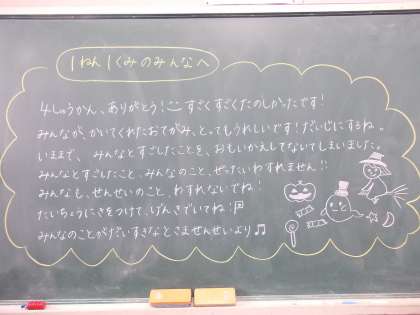 1ねん1くみのみんなへ
4しゅうかん、ありがとう！すごくすごくたのしかったです！
みんなが、かいてくれたおてがみ、とってもうれしいです！だいじにするね。
いままで、みんなとすごしたことを、おもいかえしてないてしまいました。
みんなとすごしたこと、みんなのこと、ぜったいわすれません！！
みんなも、せんせいのこと、わすれないでね！
たいちょうにきをつけて、げんきでいてね！
みんなのことがだいすきなとさませんせいより♫